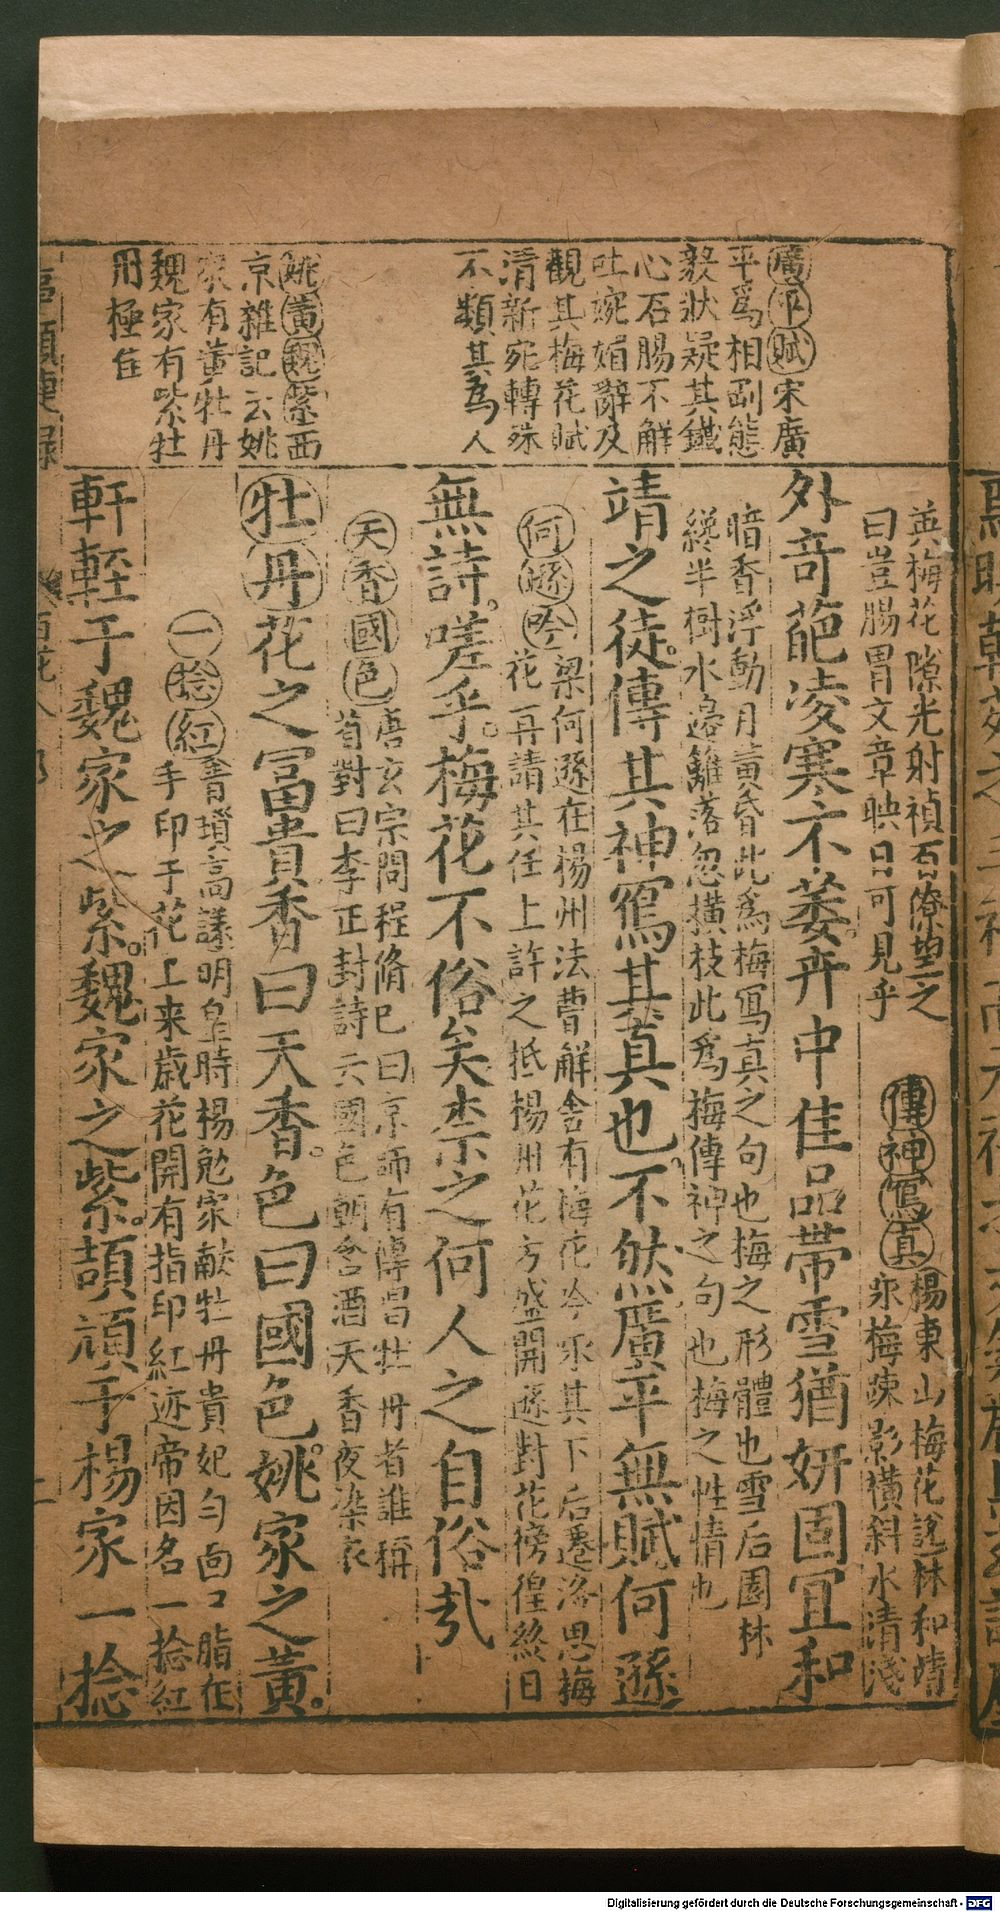 廣平賦宋廣
平爲相副態
毅狀疑其鐵
心石腸不解
吐婉媚辭及
觀其梅花賦
清新宛轉殊
不類其爲人
姚黃魏紫西
京雜記云姚
家有黃牡丹
魏家有紫牡
丹極佳
英梅花隙光射禎百僚望之
曰豈腸胃文章映日可見乎
傳神寫真楊東山梅花說林和靖
咏梅疎影橫斜水清淺
外奇葩凌寒不萎卉中佳品帶雪猶妍固宜和
暗香浮動月黃昏此爲梅寫真之句也梅之形體也雪后園林
纔半樹水邊籬落忽橫枝此爲梅傳神之句也梅之性情也
靖之徒傳其神寫其真也不然廣平無賦何遜
何遜吟梁何遜在楊州法曹廨舍有梅花吟咏其下后遷洛思梅
花再請其任上許之抵楊州花方盛開遜對花徬徨終日
無詩嗟乎梅花不俗矣柰之何人之自俗哉
天香國色唐玄宗問程脩巳曰京師有傳唱牡丹者誰稱
首對曰李正封詩云國色朝含酒天香夜染衣
牡丹花之冨貴香曰天香色曰國色姚家之黃
一捻紅青瑣高議明皇時楊勉家献牡丹貴妃匀面口脂在
手印于花上来歲花開有指印紅迹帝因名一捻紅
軒輊于魏家之紫魏家之紫頡頏于楊家一捻
百花
Digitalisierung gefördert durch die Deutsche Forschungsgemeinschaft - DFG